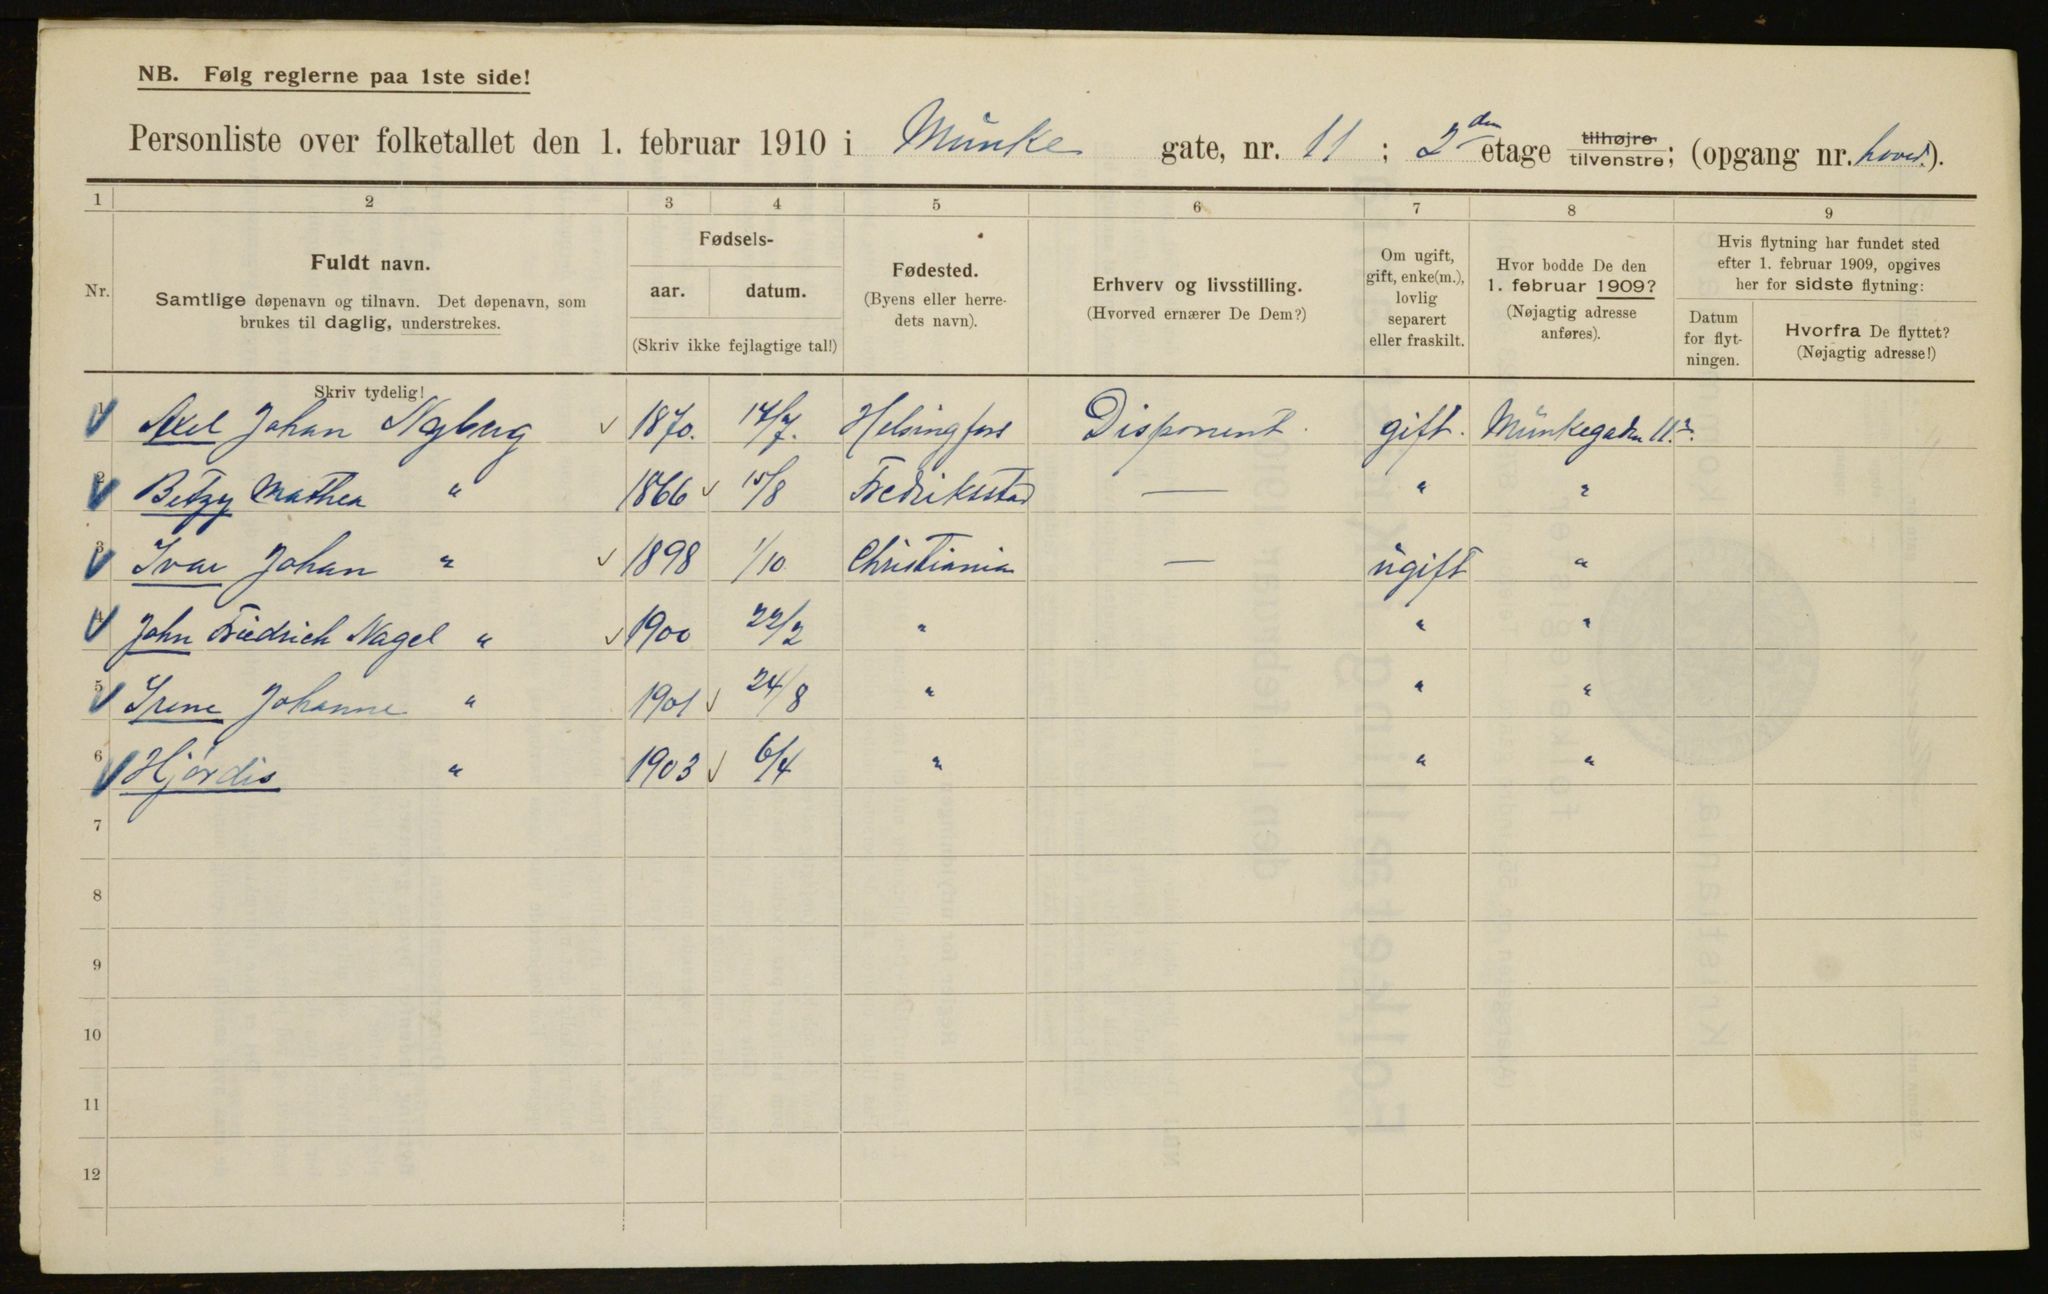 NB. Følg reglerne paa 1ste side!
Personliste over folketallet den 1. februar 1910 i Munke gate, nr. 11 ; 2den etage tilhøjre tilvenstre; (opgang nr. hoved.).
1 2 3 4 5 6 7 8 9
Nr.
Fuldt navn.
Samtlige døpenavn og tilnavn. Det døpenavn, som
brukes til daglig, understrekes.
Skriv tydelig!
Fødsels-
aar. datum.
(Skriv ikke fejlagtige tal!)
Fødested.
(Byens eller herre-
dets navn).
Erhverv og livsstilling.
(Hvorved ernærer De Dem?)
Om ugift,
gift, enke(m.),
lovlig
separert
eller fraskilt.
Hvor bodde De den
1. februar 1909?
(Nøjagtig adresse
anføres).
Hvis flytning har fundet sted
efter 1. februar 1909, opgives
her for sidste flytning:
Datum
for flyt-
ningen.
Hvorfra De flyttet?
(Nøjagtig adresse!)
1 Axel Johan Nyberg 1870. 14/7. Helsingfors Disponent. gift. Munkegaden 11.2.
2 Betzy Mathea " 1866 15/8 Fredriksstad — " "
3 Ivar Johan " 1898 1/10 Christiania — ugift "
4 John Friedrich Nagel " 1900 22/2 " " "
5 Irene Johanne " 1901 24/8 " " "
6 Hjørdis " 1903 6/4 " " "
7
8
9
10
11
12